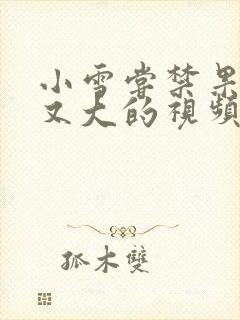 小雪嘗禁果
又大的視頻
孤木雙